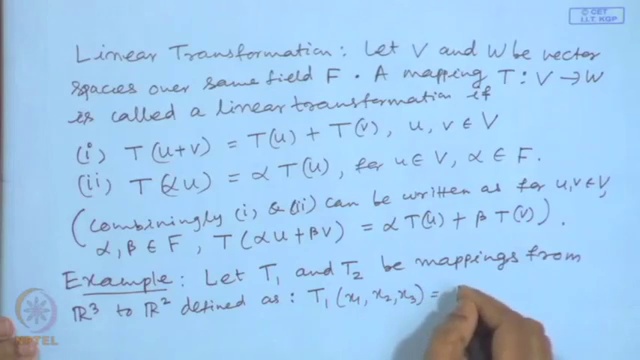 © CET
I.I.T. KGP
Linear Transformation: Let V and W be vector
spaces over same field F. A mapping T: V → W
is called a linear transformation if
(i) T(u+v) = T(u) + T(v), u, v ∈ V
(ii) T(αu) = α T(u), for u ∈ V, α ∈ F.
(Combiningly (i) & (ii) can be written as for u, v ∈ V,
α, β ∈ F, T(αu + βv) = α T(u) + β T(v)).
Example: Let T₁ and T₂ be mappings from
ℝ³ to ℝ² defined as: T₁(x₁, x₂, x₃) =
NPTEL